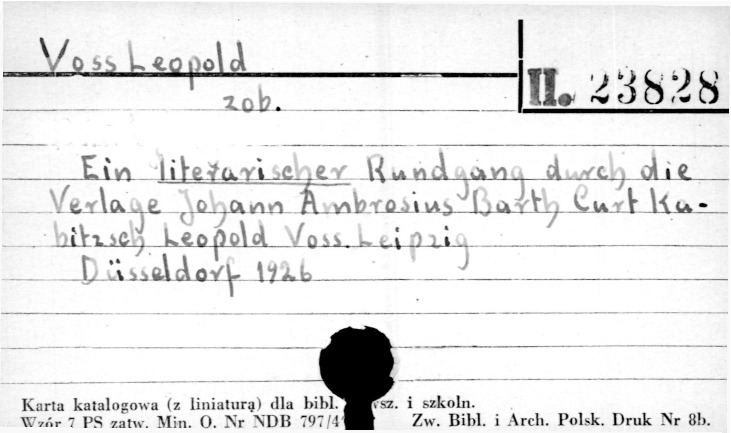 Voss Leopold
II. 23828
zob.
Ein literarischer Rundgang durch die
Verlage Johann Ambrosius Barth Curt Ka-
bitzsch Leopold Voss. Leipzig
Düsseldorf 1926
Karta katalogowa (z liniaturą) dla bibl. sz. i szkoln.
Wzór 7 PS zatw. Min. O. Nr NDB 797/4 Zw. Bibl. i Arch. Polsk. Druk Nr 8b.